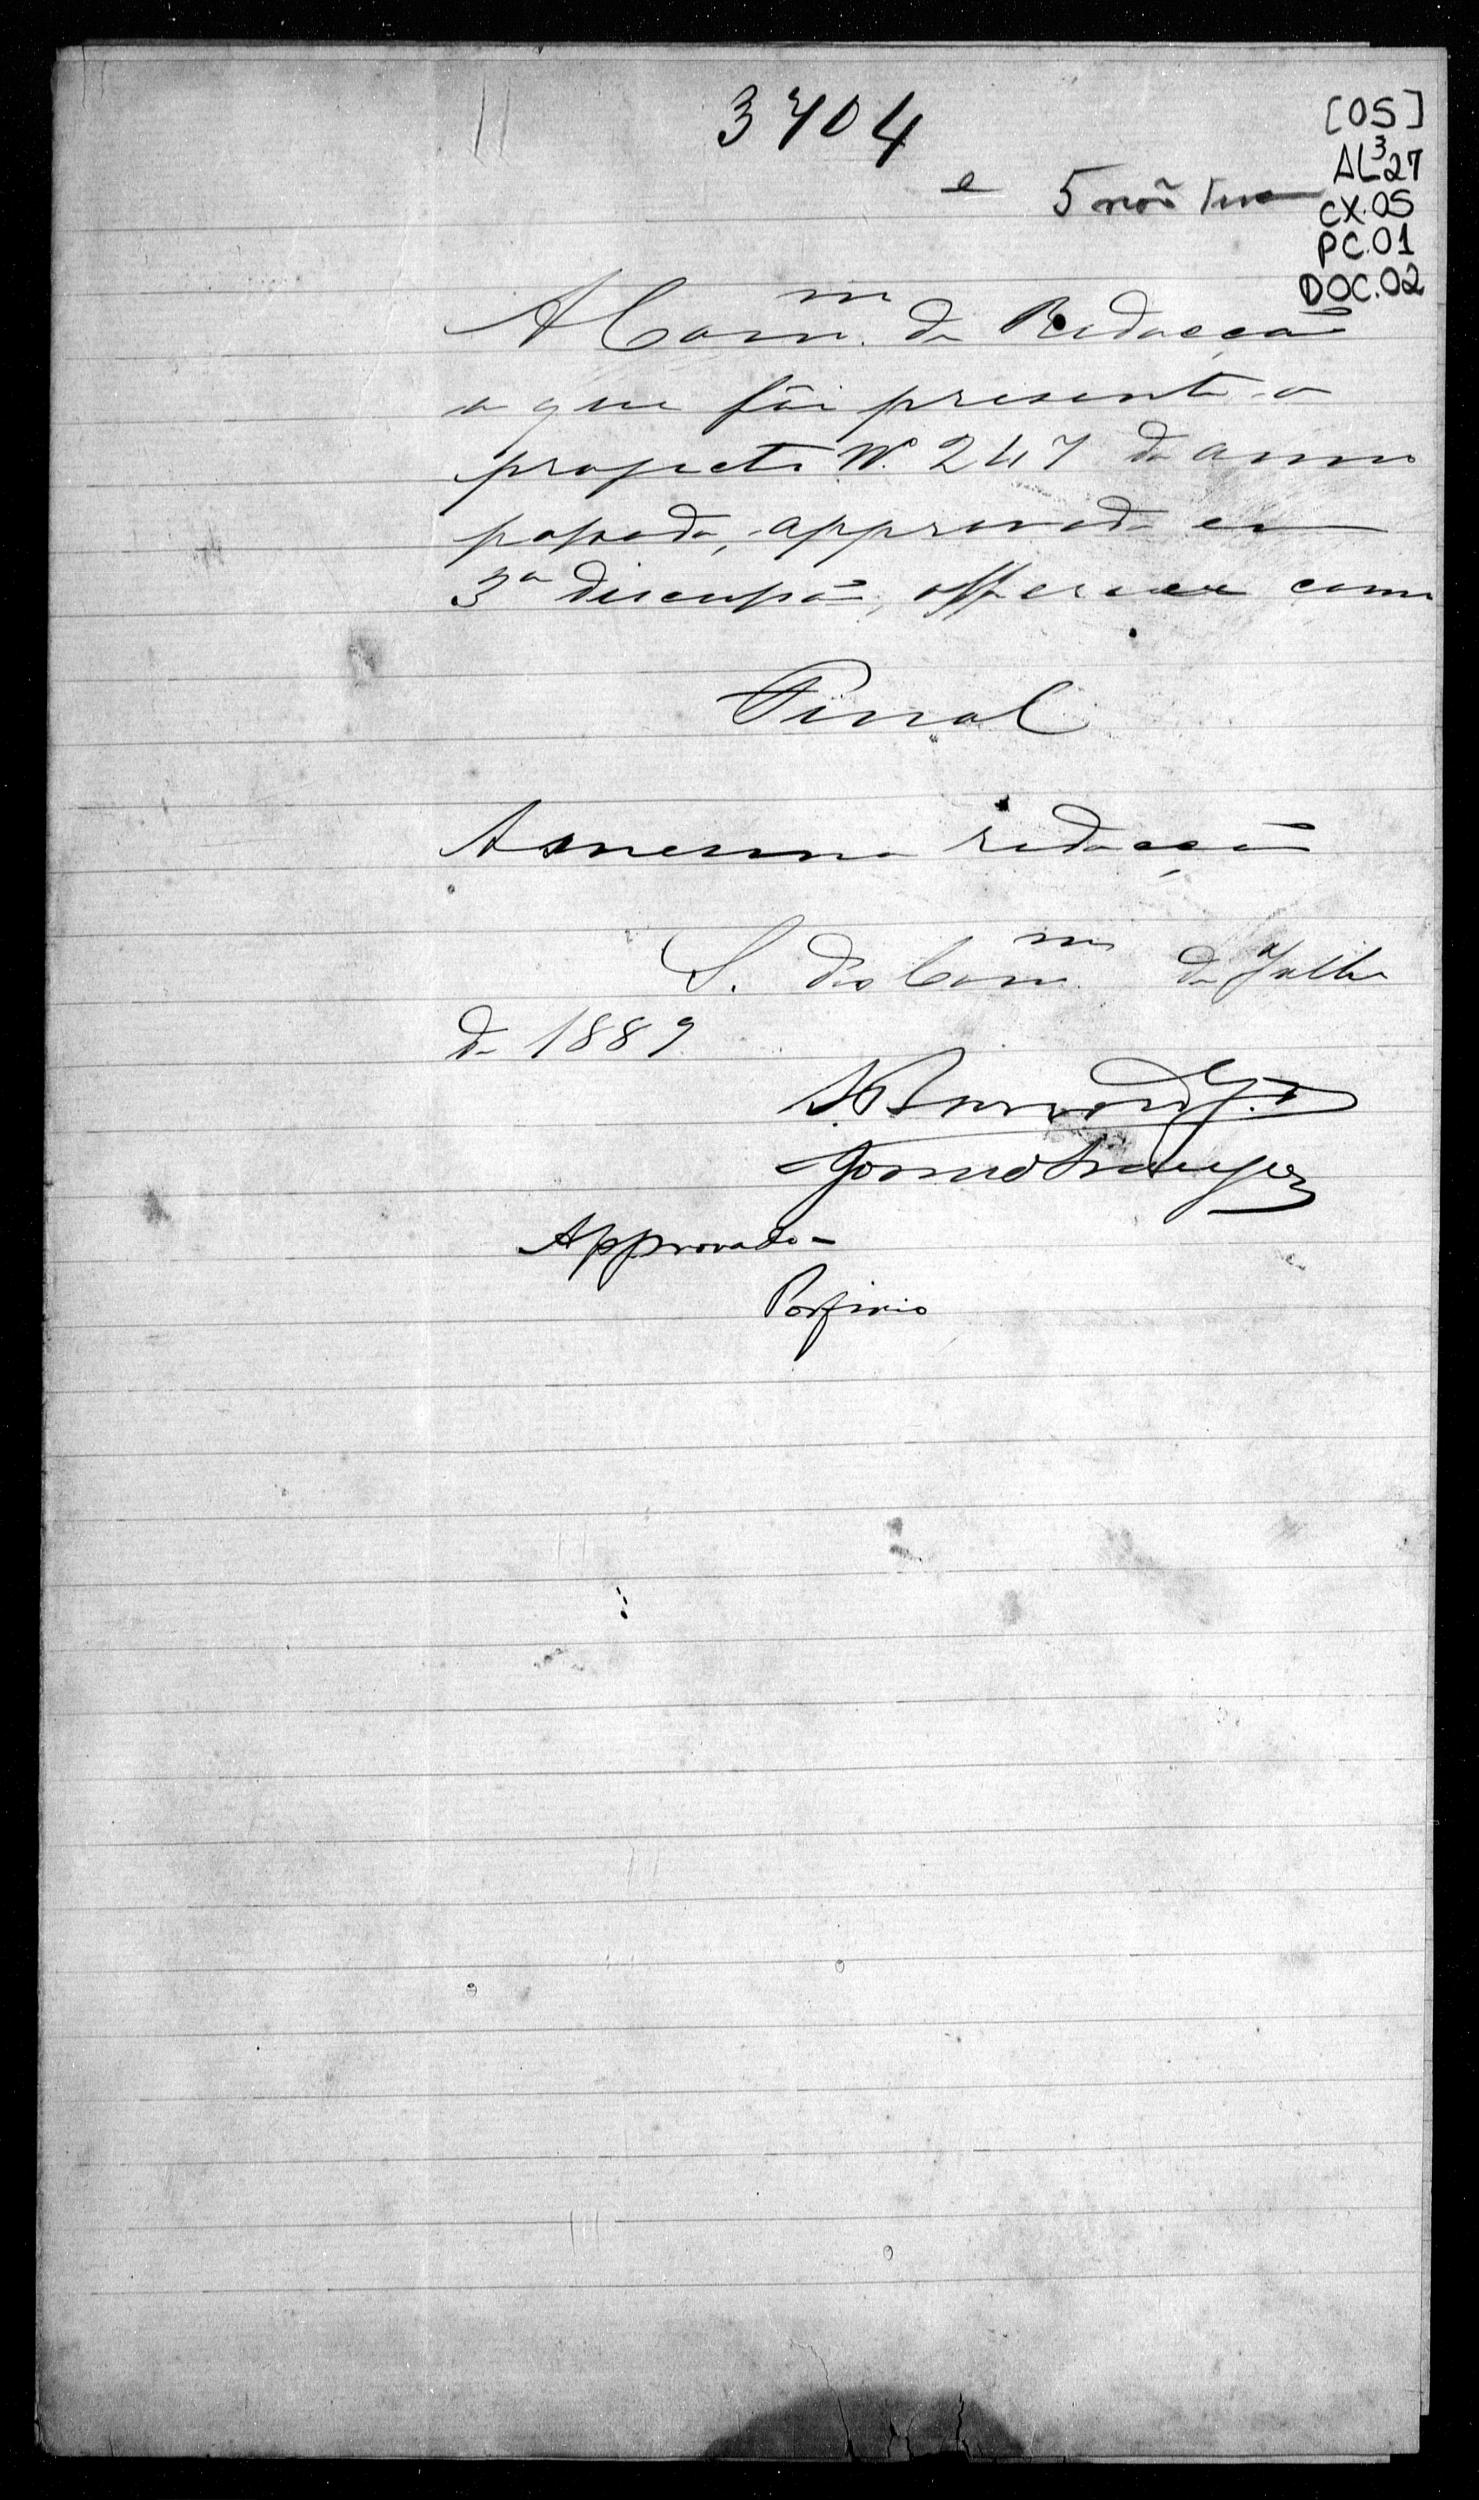 3704
[05]
AL3 27
e 5 não
CX.05
PC.01
DOC.02
A Comm. de Redacção
a que fôi presente o
projecto N. 247 do anno
passado, approvado em
3ª discussão, offerece como
Final
A mesma redacção
S. das Comm. de Julho
de 1889
Approvado -
Porfirio